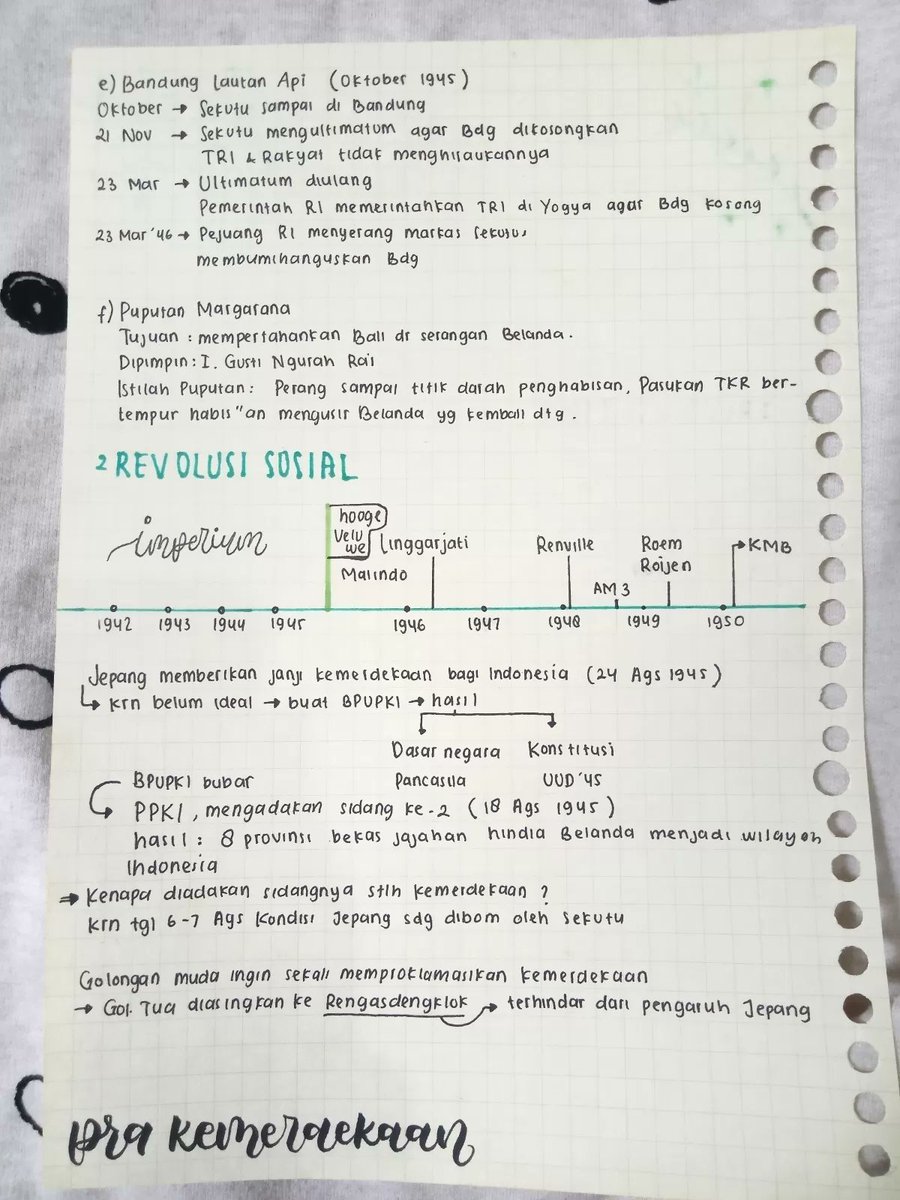 e) Bandung Lautan Api (Oktober 1945)
Oktober → Sekutu sampai di Bandung
21 Nov → Sekutu mengultimatum agar Bdg dikosongkan
TRI & Rakyat tidak menghiraukannya
23 Mar → Ultimatum diulang
Pemerintah RI memerintahkan TRI di Yogya agar Bdg kosong
23 Mar '46 → Pejuang RI menyerang markas sekutu,
membumihanguskan Bdg
f) Puputan Margarana
Tujuan : mempertahankan Bali dr serangan Belanda.
Dipimpin : I. Gusti Ngurah Rai
Istilah Puputan : Perang sampai titik darah penghabisan, Pasukan TKR ber-
tempur habis"an mengusir Belanda yg kembali dtg.
2 REVOLUSI SOSIAL
imperium
hooge
Velu
we
Linggarjati
Renville
Roem
Roijen
KMB
Malindo
AM 3
1942 1943 1944 1945 1946 1947 1948 1949 1950
Jepang memberikan janji kemerdekaan bagi Indonesia (24 Ags 1945)
↳ krn belum ideal → buat BPUPKI → hasil
Dasar negara Konstitusi
BPUPKI bubar Pancasila UUD '45
PPKI, mengadakan sidang ke-2 (18 Ags 1945)
hasil : 8 provinsi bekas jajahan hindia Belanda menjadi wilayah
Indonesia
⇒ Kenapa diadakan sidangnya stlh kemerdekaan ?
krn tgl 6-7 Ags kondisi Jepang sdg dibom oleh sekutu
Golongan muda ingin sekali memproklamasikan kemerdekaan
→ Gol. Tua diasingkan ke Rengasdengklok → terhindar dari pengaruh Jepang
pra kemerdekaan